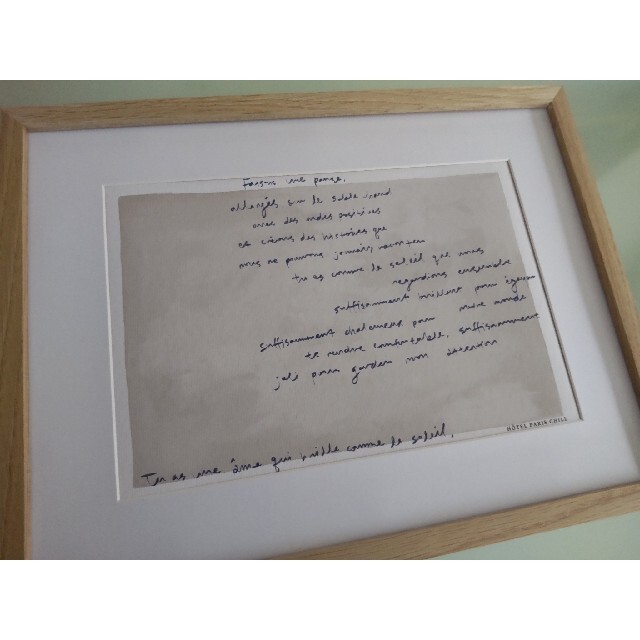 Faisons une pause,
allongés sur le sable chaud
avec des ondes positives
et créons des histoires que
nous ne pourrons jamais raconter
tu as comme le soleil que nous
regardions ensemble
suffisamment brillant pour
suffisamment chaleureux pour
te rendre confortable, suffisamment
joli pour garder mon attention
Tu as une âme qui brille comme le soleil.
HÔTEL PARIS CHILL